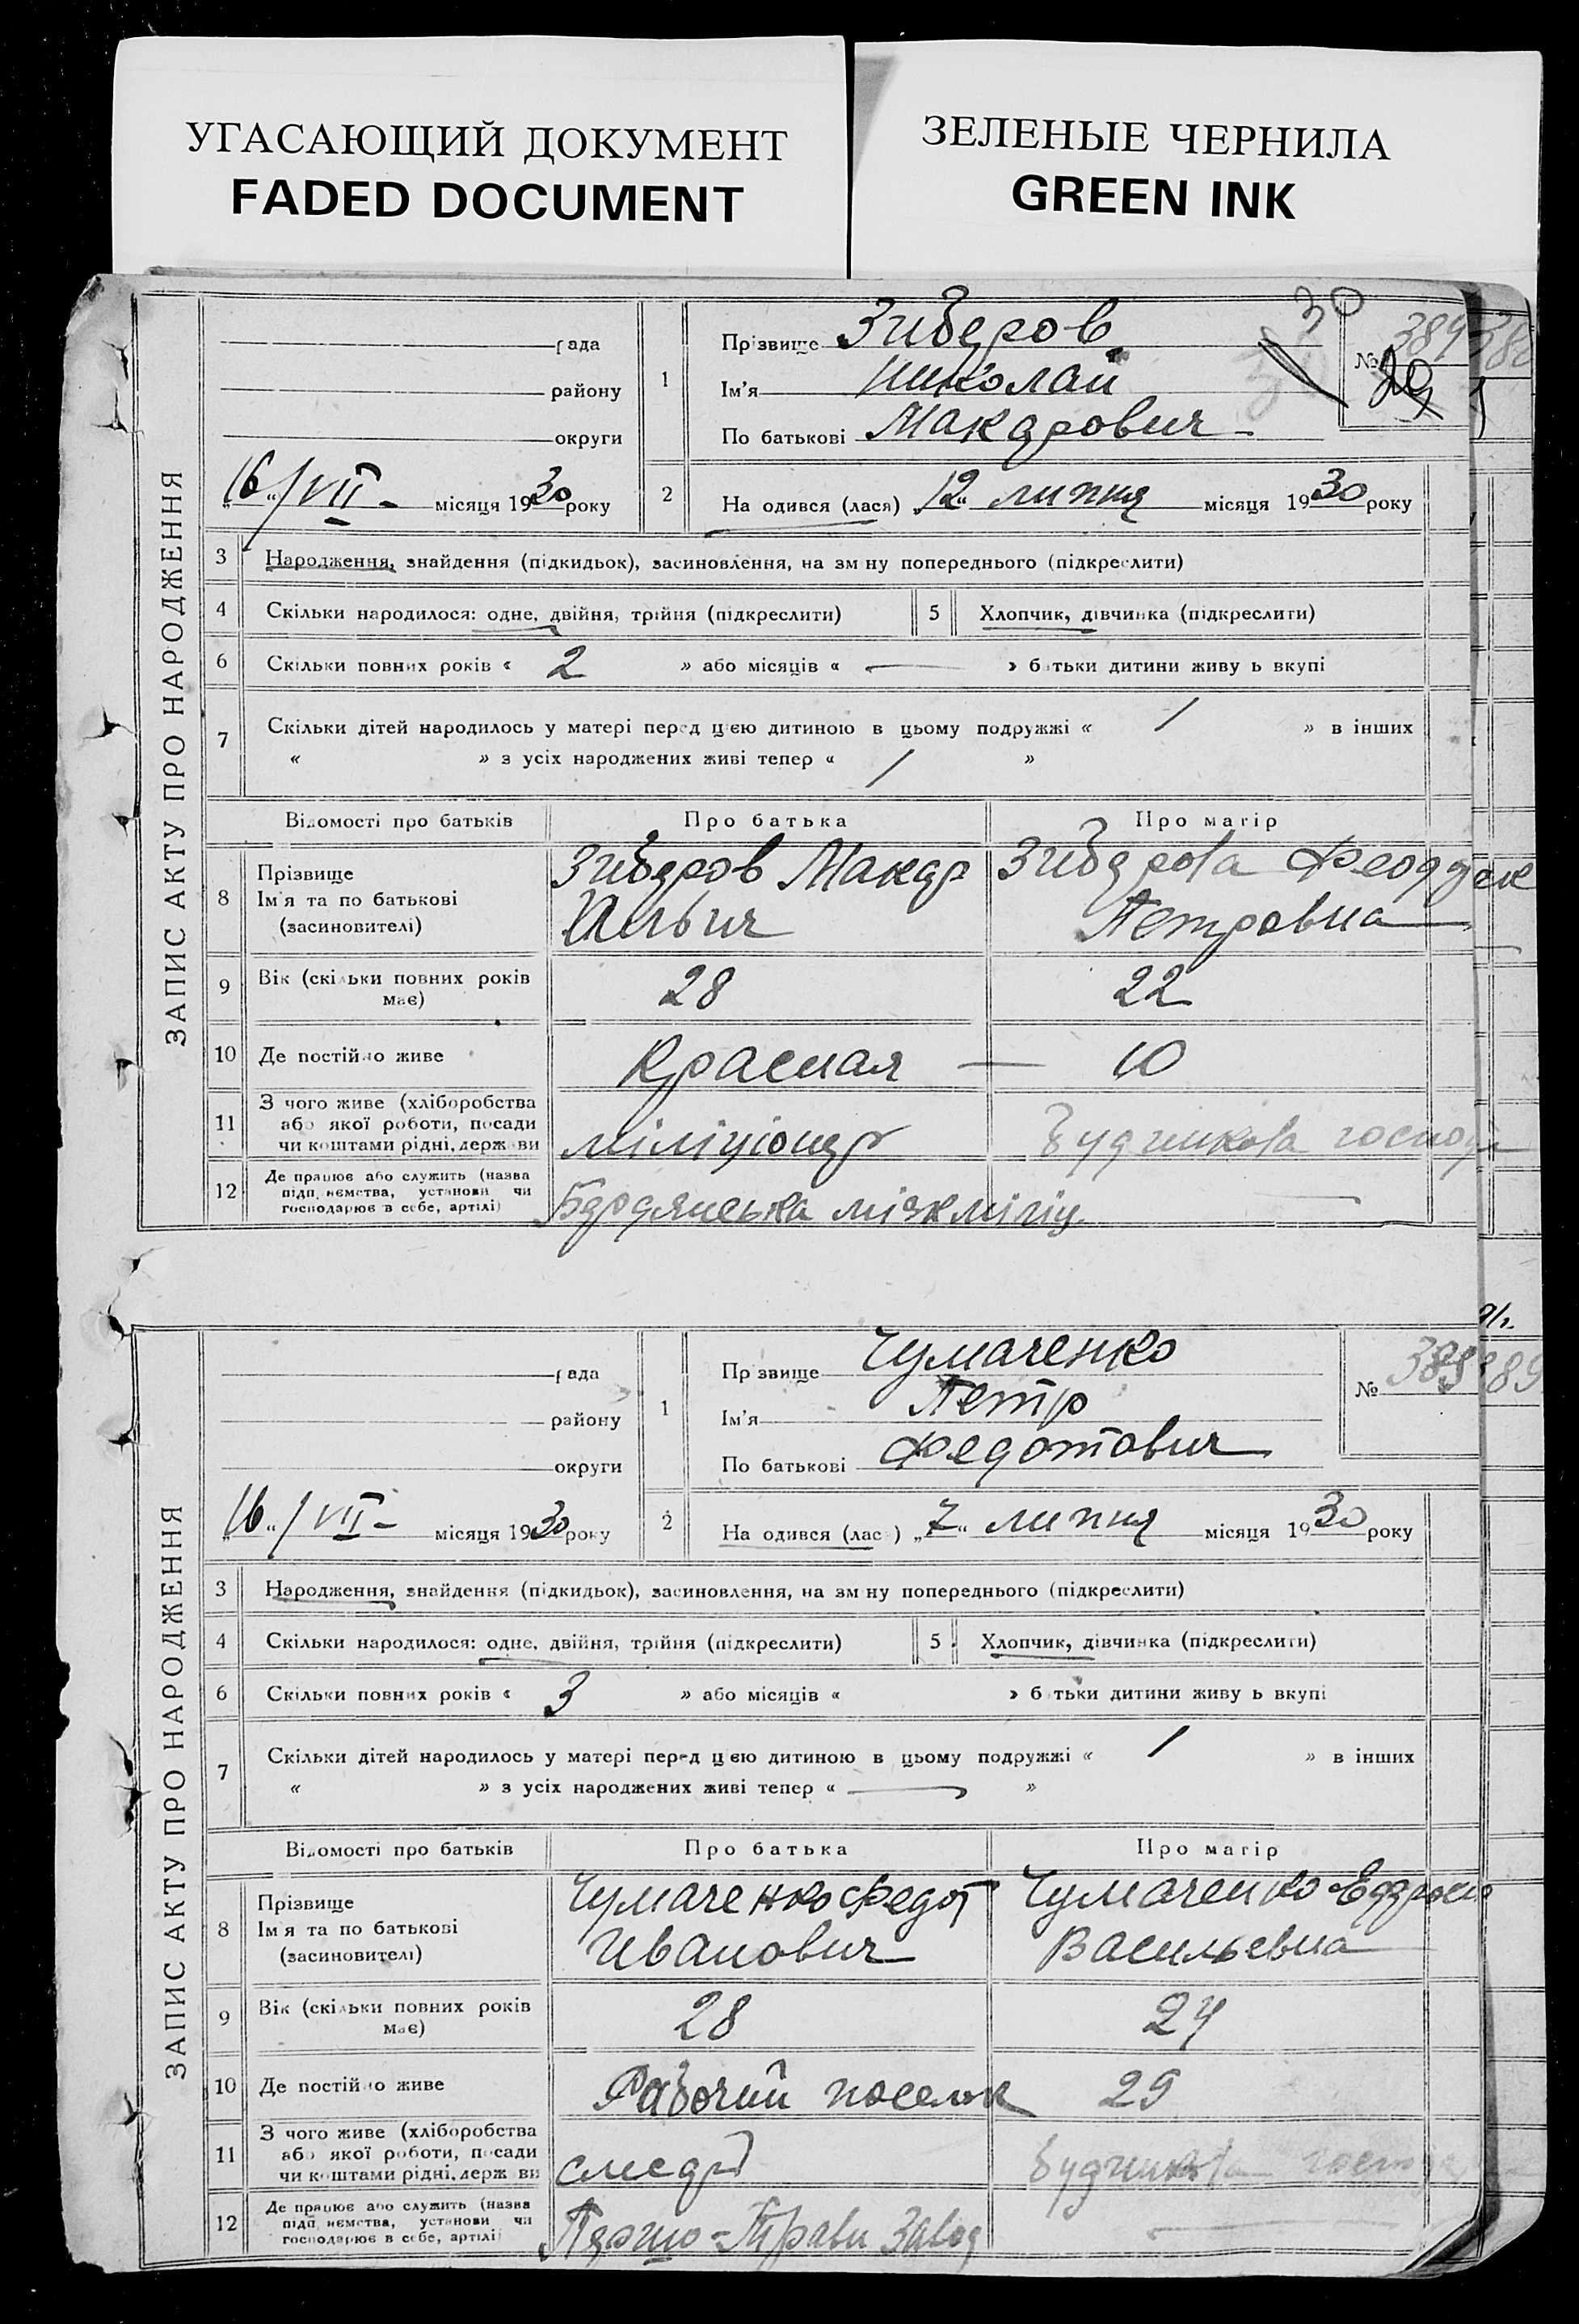 УГАСАЮЩИЙ ДОКУМЕНТ
FADED DOCUMENT
ЗЕЛЕНЫЕ ЧЕРНИЛА
GREEN INK
ЗАПИС АКТУ ПРО НАРОДЖЕННЯ
рада
району
округи
„16“/VII - місяця 1930 року
1
Прізвище Зибаров
Ім'я Николай
По батькові Макарович
30
№ 384
29
2 На одився (лася) „12“ липня місяця 1930 року
3 Народження, знайдення (підкидьок), засиновлення, на зм ну попереднього (підкреслити)
4 Скільки народилося: одне, двійня, трійня (підкреслити) 5 Хлопчик, дівчинка (підкреслити)
6 Скільки повних років « 2 » або місяців « — » батьки дитини живу ь вкупі
7 Скільки дітей народилось у матері перед цією дитиною в цьому подружжі « 1 » в інших
« » з усіх народжених живі тепер « 1 »
Відомості про батьків Про батька Про матір
8 Прізвище
Ім'я та по батькові
(засиновителі)
Зибаров Макар
Ильич
Зибарова
Петровна
9 Вік (скільки повних років
має)
28 22
10 Де постійно живе Красная — 10
11 З чого живе (хліборобства
або якої роботи, посади
чи коштами рідні, держави
міліціонер
12 Де працює або служить (назва
підприємства, установи чи
господарює в себе, артілі)
Бердянська міськміліц.
ЗАПИС АКТУ ПРО НАРОДЖЕННЯ
рада
району
округи
„16“/VII - місяця 1930 року
1
Пр звище Чумаченко
Ім'я Петр
По батькові Федотович
№ 385
2 На одився (лас ) „7“ липня місяця 1930 року
3 Народження, знайдення (підкидьок), засиновлення, на зм ну попереднього (підкреслити)
4 Скільки народилося: одне, двійня, трійня (підкреслити) 5 Хлопчик, дівчинка (підкреслити)
6 Скільки повних років « 3 » або місяців « » батьки дитини живу ь вкупі
7 Скільки дітей народилось у матері перед цією дитиною в цьому подружжі « 1 » в інших
« » з усіх народжених живі тепер « — »
Відомості про батьків Про батька Про матір
8 Прізвище
Ім'я та по батькові
(засиновителі)
Чумаченко Федот
Иванович
Чумаченко
Васильевна
9 Вік (скільки повних років
має)
28 24
10 Де постійно живе Рабочий поселок 29
11 З чого живе (хліборобства
або якої роботи, посади
чи коштами рідні, держави
слесар
12 Де працює або служить (назва
підприємства, установи чи
господарює в себе, артілі)
Першо-Трав. Завод